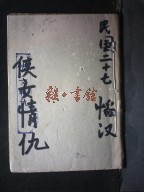 民国二十七 怪汉
[侠女情]仇
雜·書館